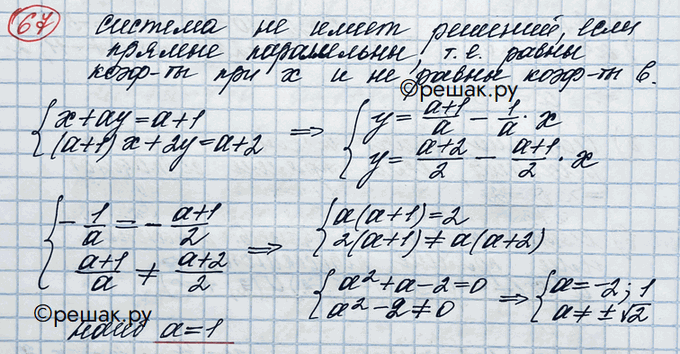 67
система не имеет решений, если
прямые параллельны, т.е. равны
коэф-ты при x и не равны коэф-ты b.
©решак.ру
{ x+ay=a+1 ⟹ { y = (a+1)/a − 1/a · x
{ (a+1)x+2y=a+2 { y = (a+2)/2 − (a+1)/2 · x
{ −1/a = −(a+1)/2 ⟹ { a(a+1)=2
{ (a+1)/a ≠ (a+2)/2 { 2(a+1) ≠ a(a+2)
{ a²+a−2=0 ⟹ { a=−2; 1
{ a²−2≠0 { a≠±√2
©решак.ру
a=1